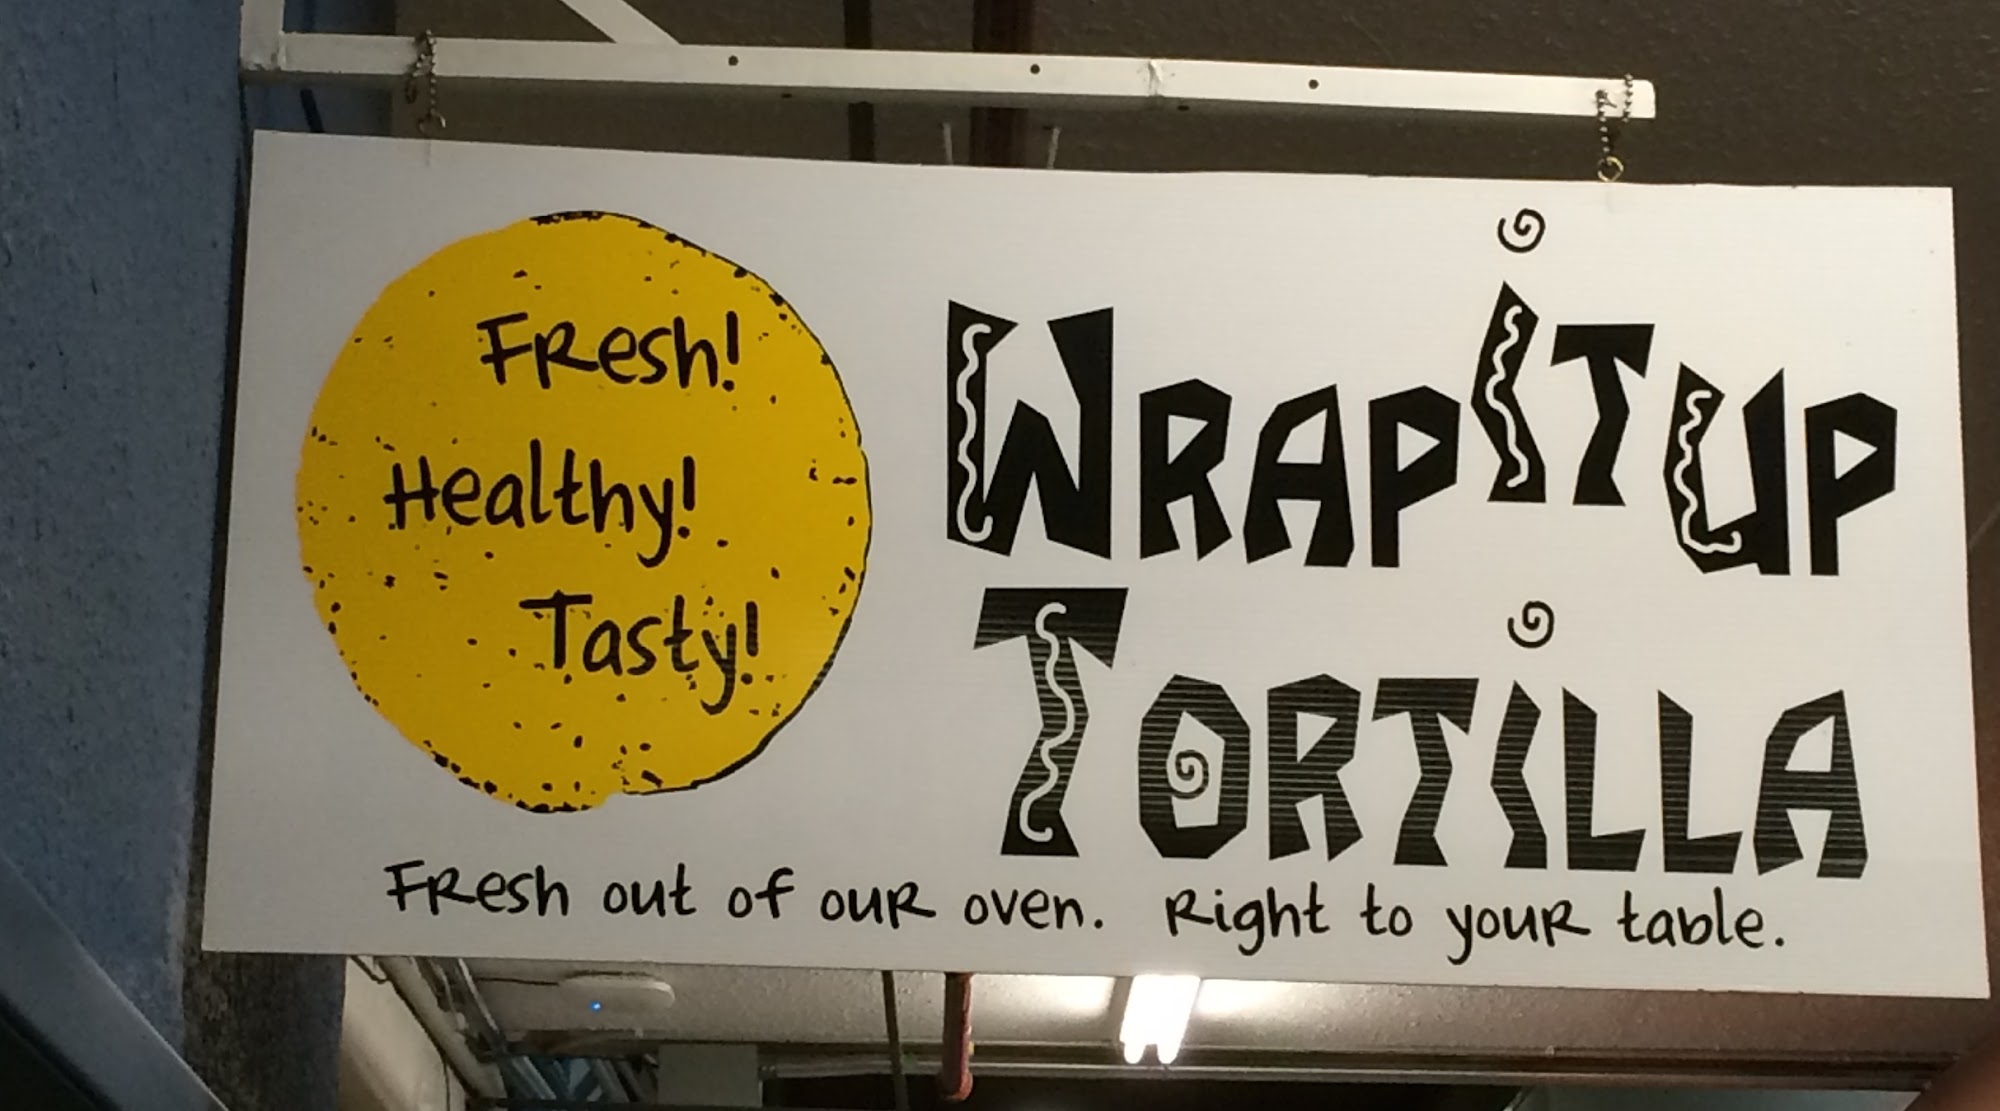 Fresh!
Healthy!
Tasty!
WRAP IT UP
TORTILLA
Fresh out of our oven. Right to your table.